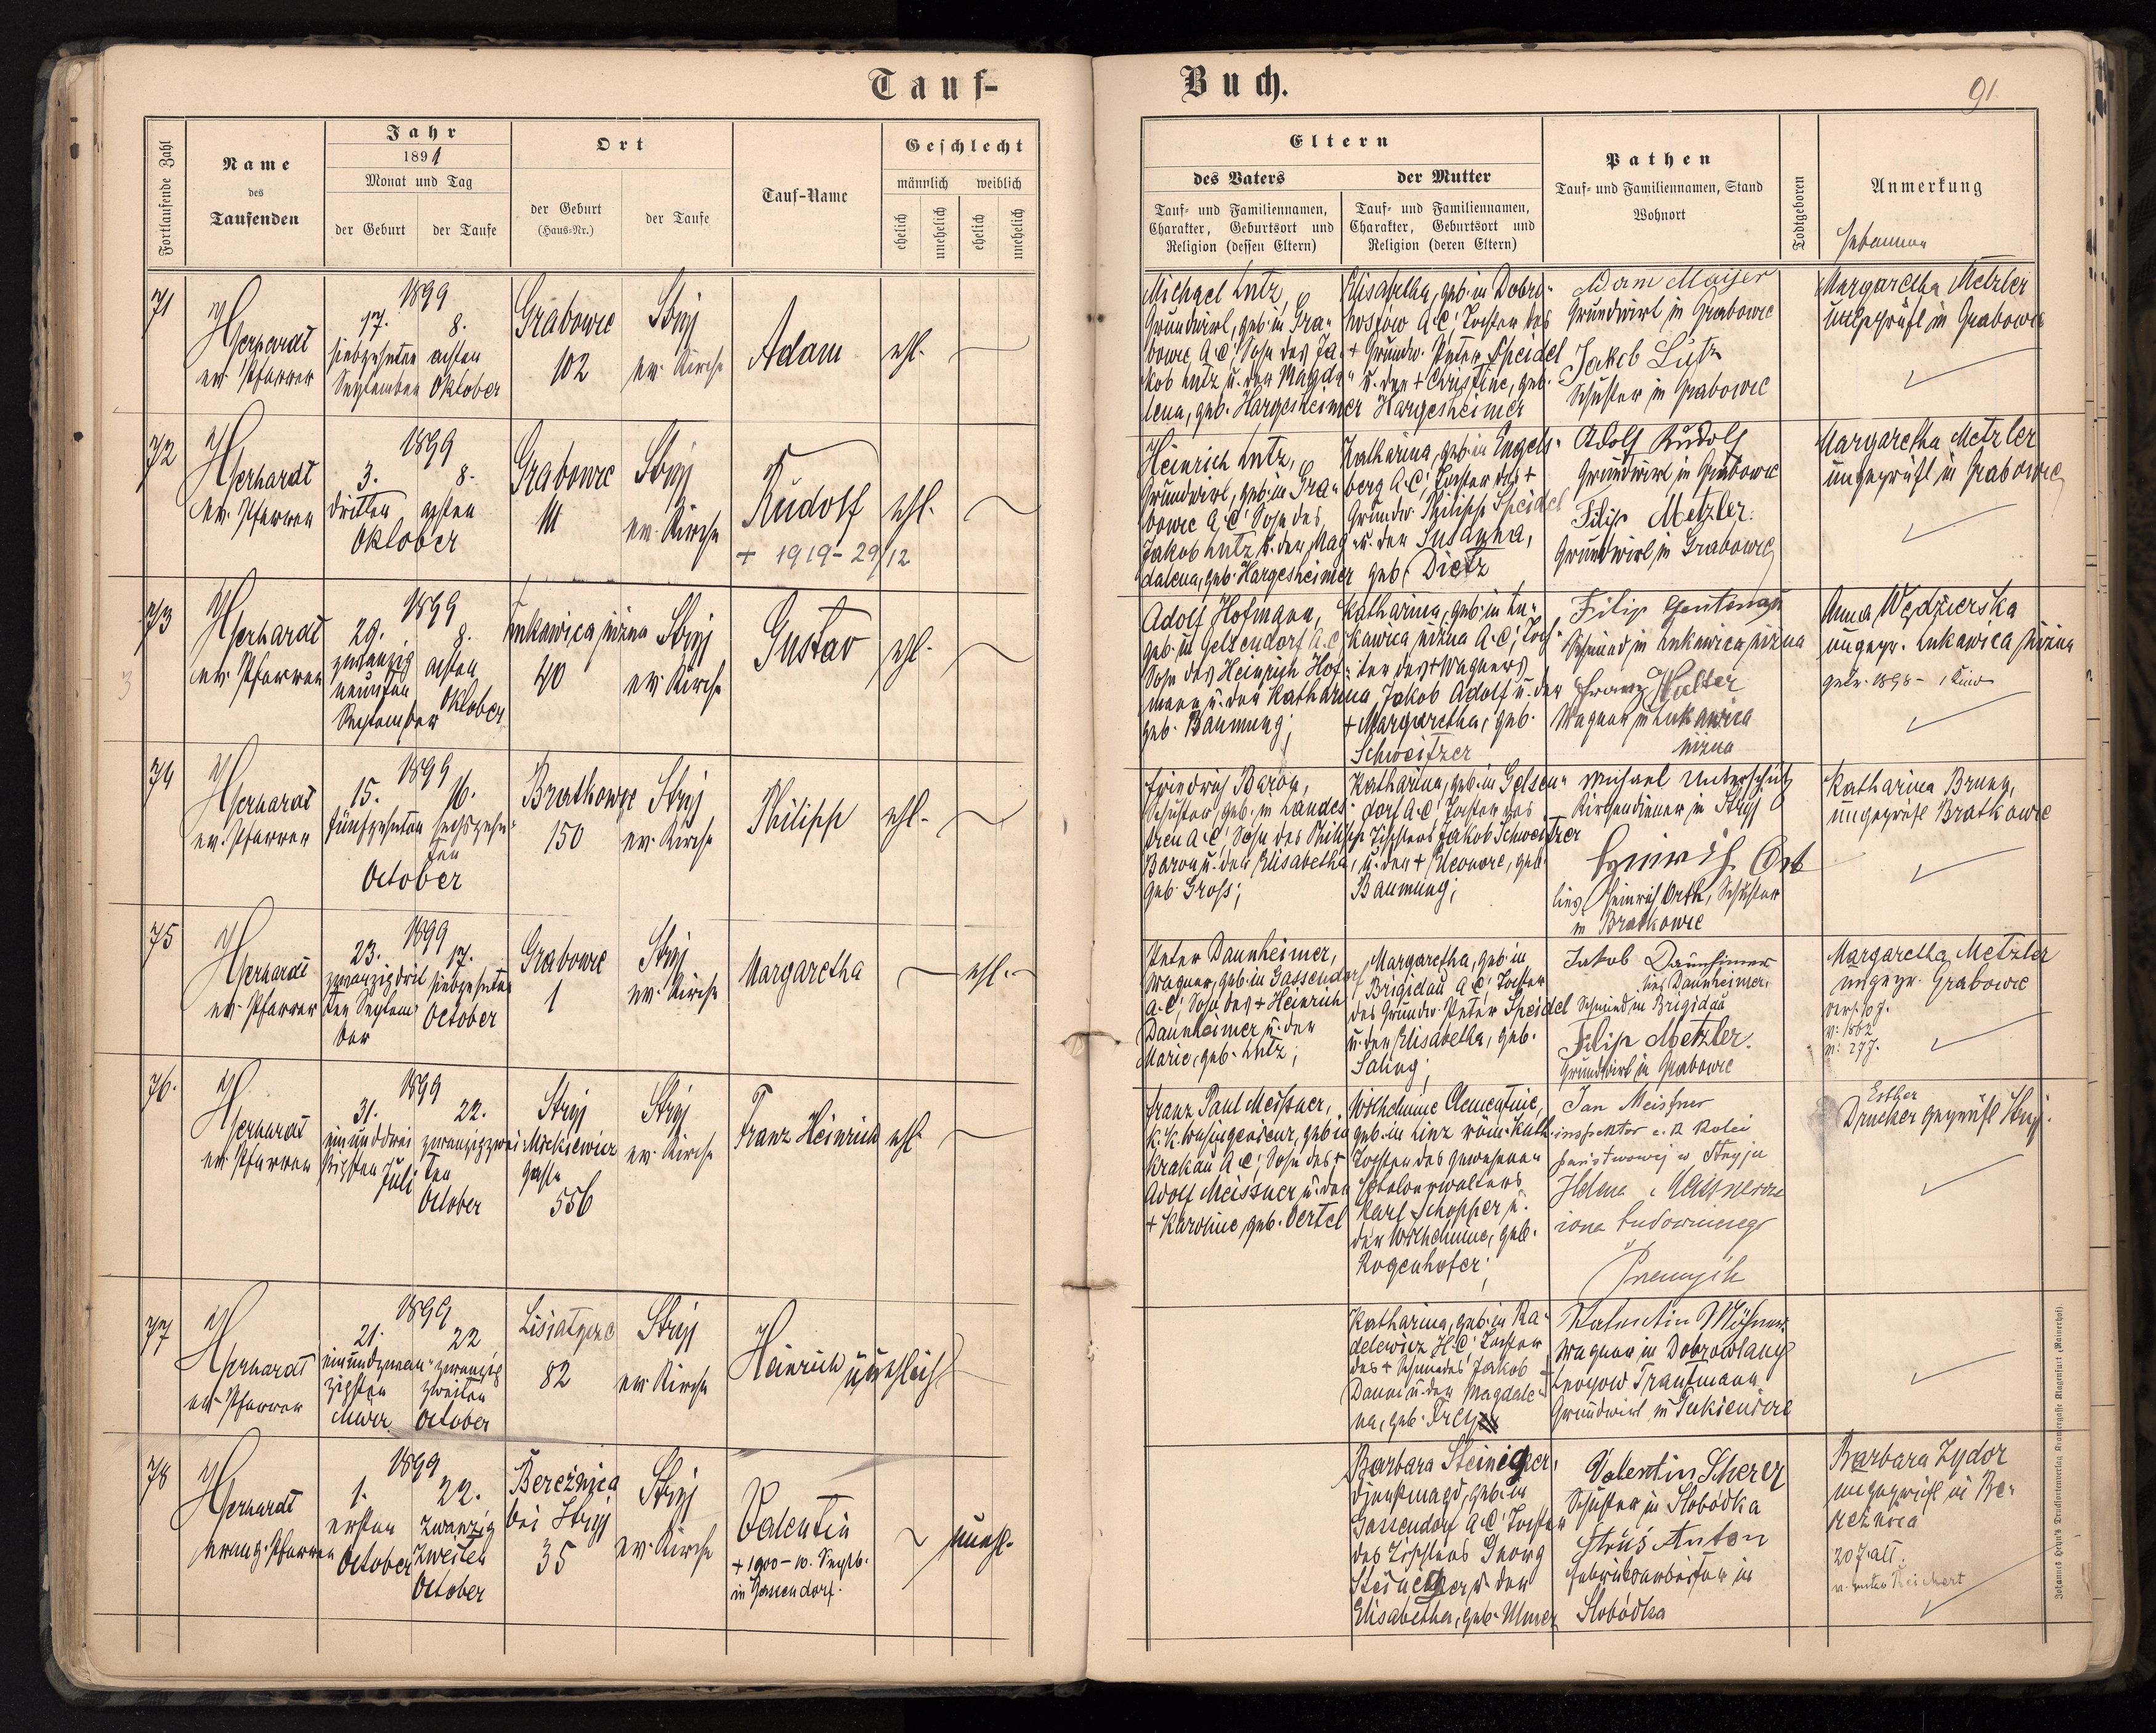 Tauf-
Buch.
91
Fortlaufende Zahl
Name
des
Taufenden
Jahr
1891
Monat und Tag
der Geburt
der Taufe
Ort
der Geburt
(Haus-Nr.)
der Taufe
Tauf-Name
Geschlecht
männlich weiblich
ehelich
unehelich
ehelich
unehelich
Eltern
des Vaters
der Mutter
Tauf- und Familiennamen,
Charakter, Geburtsort und
Religion (dessen Eltern)
Tauf- und Familiennamen,
Charakter, Geburtsort und
Religion (deren Eltern)
Pathen
Tauf- und Familiennamen, Stand
Wohnort
Todtgeboren
Anmerkung
Hebamme
71
Gerhardt
ev. Pfarrer
1899
17.
siebzehnten
September
8.
achten
Oktober
Grabowce
102
Stryj
ev. Kirche
Adam
ehl.
Michael Lutz,
Grundwirt, geb. in Gra-
bowce A.C., Sohn des Ja-
kob Lutz u. der Magda-
lena, geb. Hargesheimer
Elisabetha, geb. in Dobri-
hostów A.C., Tochter des
+ Grundw. Peter Speidel
u. der + Christine, geb.
Hargesheimer
Adam Majer
Grundwirt in Grabowce
Jakob Lutz
Schuster in Grabowce
Margaretha Metzler
ungeprüft in Grabowce
72
Gerhardt
ev. Pfarrer
1899
3.
dritten
8.
achten
Oktober
Grabowce
111
Stryj
ev. Kirche
Rudolf
+ 1919-29/12
ehl.
Heinrich Lutz,
Grundwirt, geb. in Gra-
bowce A.C., Sohn des
Jakob Lutz u. der Mag-
dalena, geb. Hargesheimer
Katharina, geb. in Engels-
berg A.C., Tochter des +
Grundw. Philipp Speidel
u. der Susanna,
geb. Dietz
Adolf Rudolf
Grundwirt in Grabowce
Filip Metzler.
Grundwirt in Grabowce
Margaretha Metzler
ungeprüft in Grabowce
73
Gerhardt
ev. Pfarrer
1899
29.
zwanzig
neunten
September
8.
achten
Oktober
Łukawica niżna
40
Stryj
ev. Kirche
Gustav
ehl.
Adolf Hofmann,
geb. in Gelsendorf A.C.,
Sohn des Heinrich Hof-
mann u. der Katharina
geb. Baumung;
Katharina, geb. in Łu-
kawica niżna A.C., Toch-
ter des + Wagners
Jakob Adolf u. der
+ Margaretha, geb.
Schweitzer
Filip
Schmied in Łukawica niżna
Franz Walter
Wagner in Łukawica
niżna
Anna Wędzierska
ungepr. Łukawica niżna
getr. 1898 - 1 Kind
74
Gerhardt
ev. Pfarrer
1899
15.
fünfzehnten
16.
sechszehn-
ten
October
Bratkowce
150
Stryj
ev. Kirche
Philipp
ehl.
Friedrich Baron,
Schuster, geb. in Landes-
treu A.C., Sohn des Philipp
Baron u. der Elisabetha,
geb. Gross;
Katharina, geb. in Gelsen-
dorf A.C., Tochter des
Tischlers Jakob Schweitzer
u. der + Eleonore, geb.
Baumung;
Michael Unterschütz
Kirchendiener in Stryj
Heinrich Ort
lies Heinrich Orth, Schuster
in Bratkowce
Katharina Brung,
ungeprüft Bratkowce
75
Gerhardt
ev. Pfarrer
1899
23.
zwanzigdrit-
ten Septem-
ber
17.
siebzehnten
October
Grabowce
1
Stryj
ev. Kirche
Margaretha
ehl.
Peter Dannheimer,
Wagner, geb. in Gassendorf
A.C., Sohn des + Heinrich
Dannheimer u. der
Marie, geb. Lutz;
Margaretha, geb. in
Brigidau A.C., Tochter
des Grundw. Peter Speidel
u. der Elisabetha, geb.
Saling;
Jakob Daunheimer
lies Dannheimer
Schmied in Brigidau
Filip Metzler.
Grundwirt in Grabowce
Margaretha Metzler
ungepr. Grabowce
76.
Gerhardt
ev. Pfarrer
1899
31.
einunddrei-
ßigsten
Juli
22.
zwanzigzwei-
ten
October
Stryj
Mickiewicz
gasse
556
Stryj
ev. Kirche
Franz Heinrich
ehl.
Franz Paul Meissner,
k.k. Bauingenieur, geb. in
Krakau A.C., Sohn des +
Adolf Meissner u. der
+ Karoline, geb. Oertel
Wilhelmine Clementine,
geb. in Linz röm. kath.
Tochter des gewesenen
Karl Schopper u.
der Wilhelmine, geb.
Rogenhofer;
Jan Meissner
inspektor c.k. kolei
państwowej w Stryju
Helena Meissnerowa
żona budowniczego
Przemyśl
Esther
Drucker geprüft Stryj.
77
Gerhardt
ev. Pfarrer
1899
21.
einundzwan-
zigsten
März
22
zwanzig
zweiten
October
Lisiatycze
82
Stryj
ev. Kirche
Heinrich
unehelich
Katharina, geb. in Ka-
delewicz H.C., Tochter
des + Schmiedes Jakob
Danni u. der Magdale-
na, geb. Frey
Valentin
Wagner in Dobrowlany
Trautmann
Grundwirt in
78
Gerhardt
evang. Pfarrer
1899
1.
ersten
October
22.
zwanzig
zweiten
October
Bereźnica
bei Stryj
35
Stryj
ev. Kirche
Valentin
+ 1900 - 10. Septb.
in Gassendorf.
unehl.
Barbara Steiniger,
Dienstmagd, geb. in
Gassendorf A.C., Tochter
des Tischlers Georg
Steiniger u. der
Elisabetha, geb. Ulmer
Valentin Scherer
Schuster in Slobódka
Strus Anton
Fabriksarbeiter in
Slobódka
Barbara Zydor
ungeprüft in Be-
reźnica
20 J. alt.